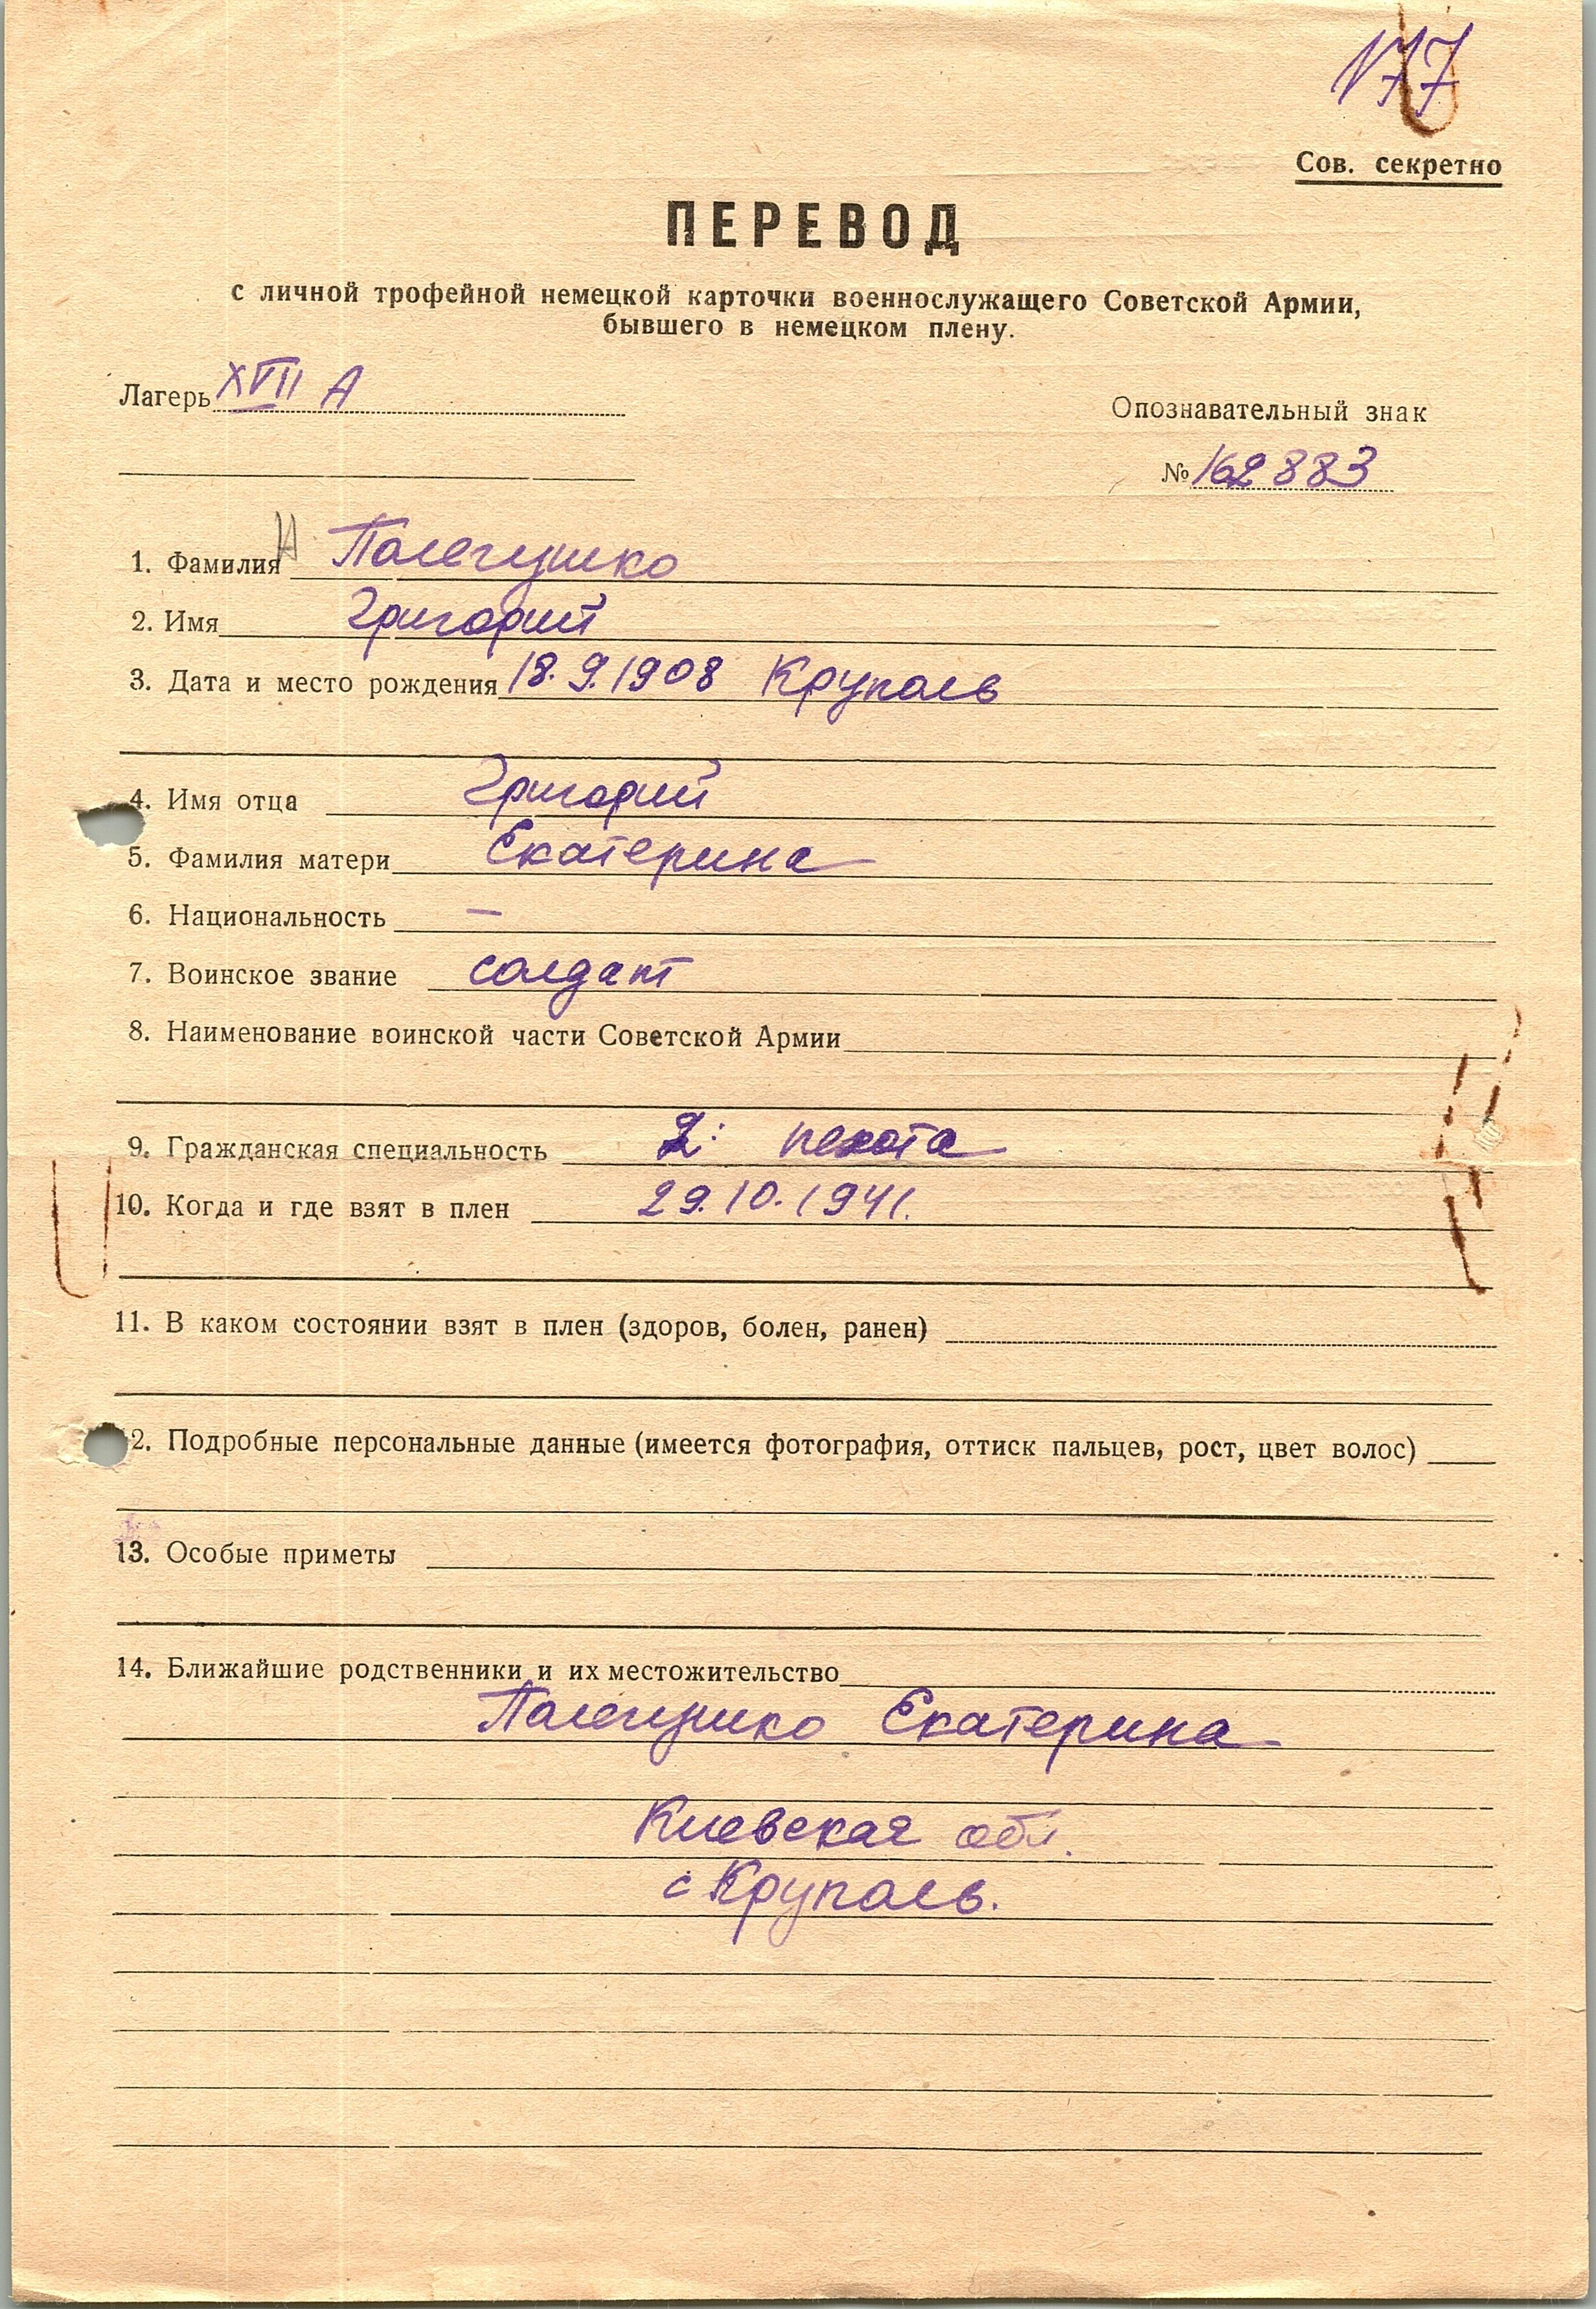 177
Сов. секретно
ПЕРЕВОД
с личной трофейной немецкой карточки военнослужащего Советской Армии,
бывшего в немецком плену.
Лагерь XVII А
Опознавательный знак
№ 162883
1. Фамилия Палегушко
2. Имя Григорий
3. Дата и место рождения 18.9.1908 Круполь
4. Имя отца Григорий
5. Фамилия матери Екатерина
6. Национальность —
7. Воинское звание солдат
8. Наименование воинской части Советской Армии
9. Гражданская специальность пехота
10. Когда и где взят в плен 29.10.1941.
11. В каком состоянии взят в плен (здоров, болен, ранен)
12. Подробные персональные данные (имеется фотография, оттиск пальцев, рост, цвет волос)
13. Особые приметы
14. Ближайшие родственники и их местожительство
Палегушко Екатерина
Киевская обл.
с Круполь.